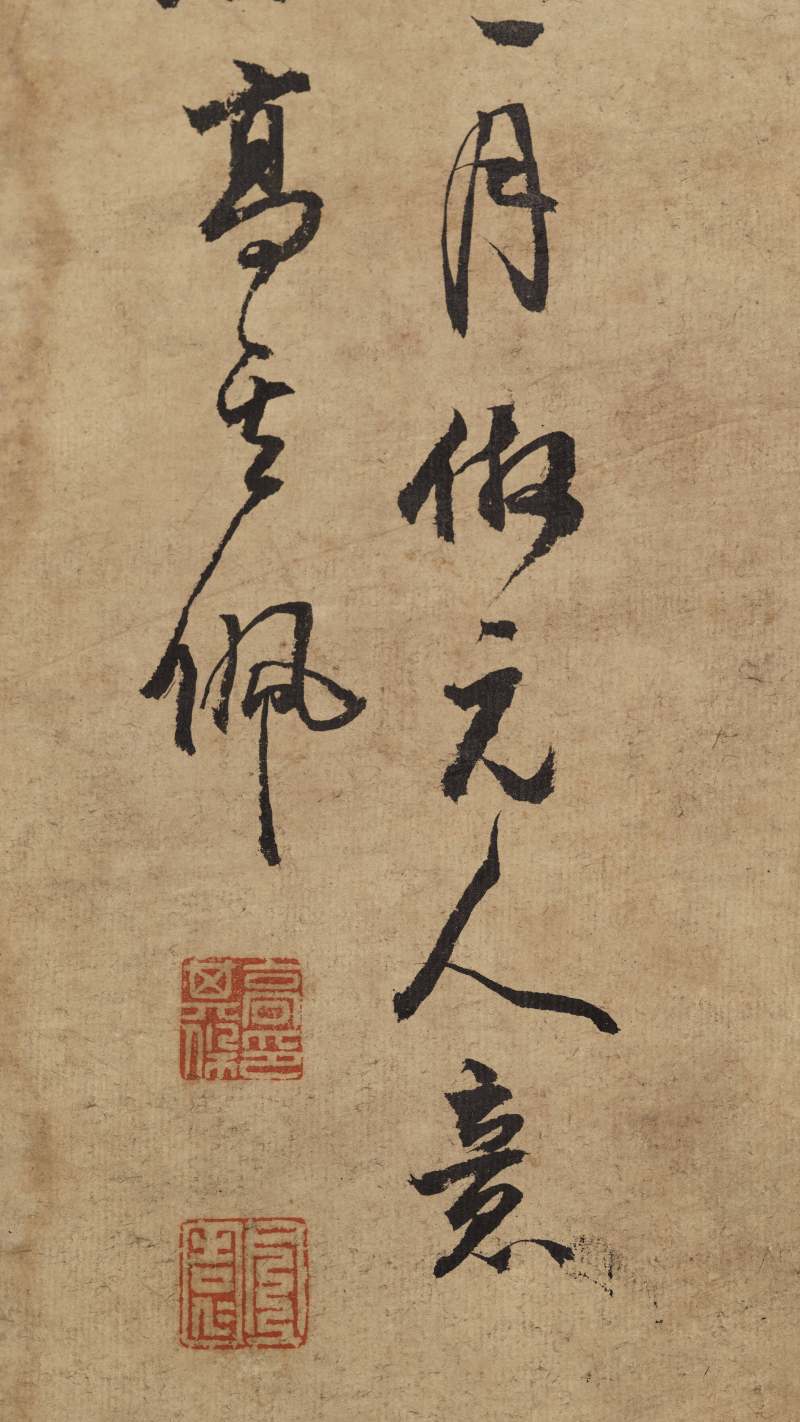 一月倣元人意
高其佩